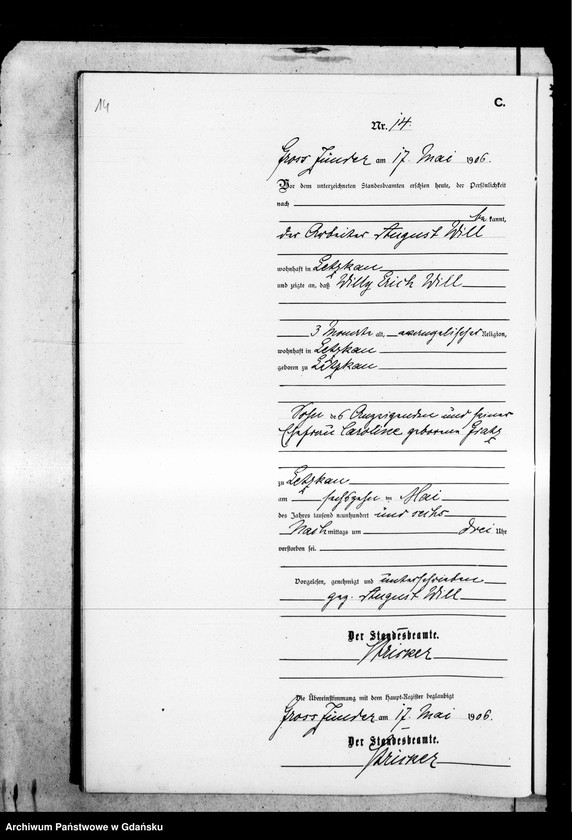 14
C.
Nr. 14.
Gross Zünder am 17. Mai 1906.
Vor dem unterzeichneten Standesbeamten erschien heute, der Persönlichkeit
nach
be kannt,
der Arbeiter August Will
wohnhaft in Letzkau
und zeigte an, daß Willy Erich Will
3 Monate alt, evangelischer Religion,
wohnhaft in Letzkau
geboren zu Letzkau
Sohn des Anzeigenden und seiner
Ehefrau Caroline geborene
zu Letzkau
am sechszehn ten Mai
des Jahres tausend neunhundert und sechs
Nach mittags um drei Uhr
verstorben sei.
Vorgelesen, genehmigt und unterschrieben
gez. August Will
Der Standesbeamte.
Die Übereinstimmung mit dem Haupt-Register beglaubigt
Gross Zünder am 17. Mai 1906.
Der Standesbeamte.
Archiwum Państwowe w Gdańsku